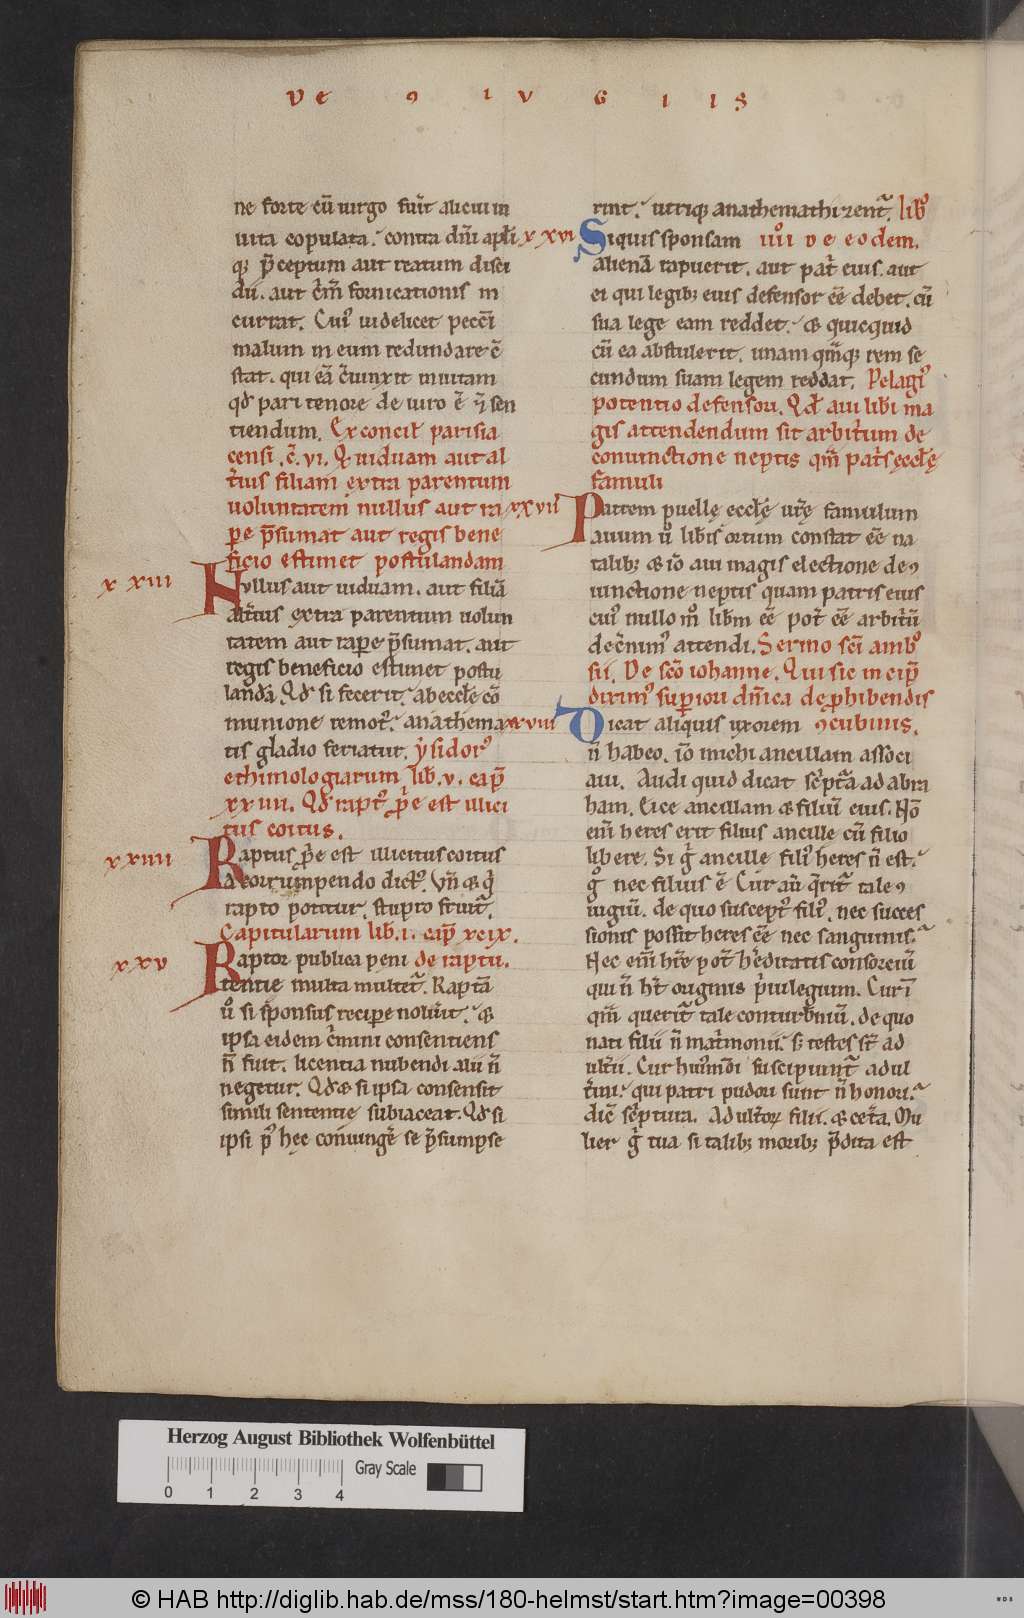 DE 9 I V G I I S
ne forte cū uirgo fuit alicui in
uita copulata. contra dn̄i apłi
q; p̄ceptum aut reatum disci
dii. aut c̄m̄ fornicationis in
currat. Cui' uidelicet pecc̄i
malum in eum redundare c̄
stat. qui eā c̄iunxit inuitam
qd̄ pari tenore de uiro ē ⁊ sen
tiendum. Ex conciƚ parisia
censi .c̄. vi. Qd̄ uiduam aut al
t̄ius filiam extra parentum
uoluntatem nullus aut ra
pe p̄sumat aut regis bene
ficio estimet postulandam
x xiii
Nullus aut uiduam. aut filiā
alt̄ius extra parentum uolun
tatem aut rape p̄sumat. aut
regis beneficio estimet postu
landā. Qd̄ si fecerit. ab eccƚe cō
munione remot'. anathema
tis gladio feriatur. ysidor'
ethimologiarum lib. v. cap̄
xx iiii. Qd̄ rapt' p̄e est illici
tus coitus.
xxiiii
Raptus p̄e est illicitus coitus
a corrumpendo dict'. Vn̄ & q̇
rapto potitur. stupro fruit̄.
Capitularum lib. i. cap̄ xcix.
xxv
Raptor publica peni de raptu.
tentie multa multet̄. Raptā
u̇ si sponsus recipe noluit. &
ipsa eidem c̄mini consentiens
n̄ fuit. licentia nubendi alii n̄
negetur. Qd̄ & si ipsa consensit
simili sententie subiaceat. Qd̄ si
ipsi p' hec coniunge se p̄sumpse
rint. utriq; anathemathizent̄. lib'
xxvi
Siquis sponsam iiii de eodem.
alienā rapuerit. aut pat̄ eius. aut
ei qui legib; eius defensor eē debet. cū
sua lege eam reddet. & quicquid
cū ea abstulerit. unam qmq; rem se
cundum suam legem reddat. Pelagi'
potentio defensori. Qd̄ aui lib̄i ma
gis attendendum sit arbit̄um de
coniunctione neptis qm̄ pat̄s eccƚę
famuli
xxvii
Patrem puellę eccƚę ur̄ę famulum
auum u̇ lib̄is ortum constat eē na
talib; & iō aui magis electione de 9
iunctione neptis quam patris eius
cui' nullo m̊ lib̄m eē pot̄ eē arbit̄ū
dec̄nim' attendi. Sermo sc̄i amb'
sii. De sc̄o iohanne. Qui sic incip̄
dirim' supiori dn̄ica de phibendis
xxviii
Dicat aliquis uxorem 9cubinis.
n̄ habeo. iō michi ancillam associ
aui. Audi quid dicat sc̄pt̄a ad abra
ham. Eice ancillam & filiū eius. Nō
eni heres erit filius ancille cū filio
libere. Si g̊ ancille fili' heres n̄ est.
g̊ nec filius ē Cur aū q̄rit̄ tale 9
iugiū. de quo suscept' fili'. nec succes
sionis possit heres eē nec sanguinis.
Nec eni h̄re pot̄ h̄editatis consorciū
qui n̄ h̄t originis p̄iuilegium. Cur i
qm̄ querit̄ tale conturb̄niū. de quo
nati filii n̄ mat̄monii. s; testes st̄ ad
ult̄ii. Cur hui'modi suscipiunt̄ adul
t̄ini. qui patri pudori sunt n̄ honori.
dic̄ sc̄ptura. Adult̄oꝝ filii. & cet̄a. Mu
lier g̊ tua si talib; morib; p̄dita est
Herzog August Bibliothek Wolfenbüttel
Gray Scale
0 1 2 3 4
© HAB http://diglib.hab.de/mss/180-helmst/start.htm?image=00398